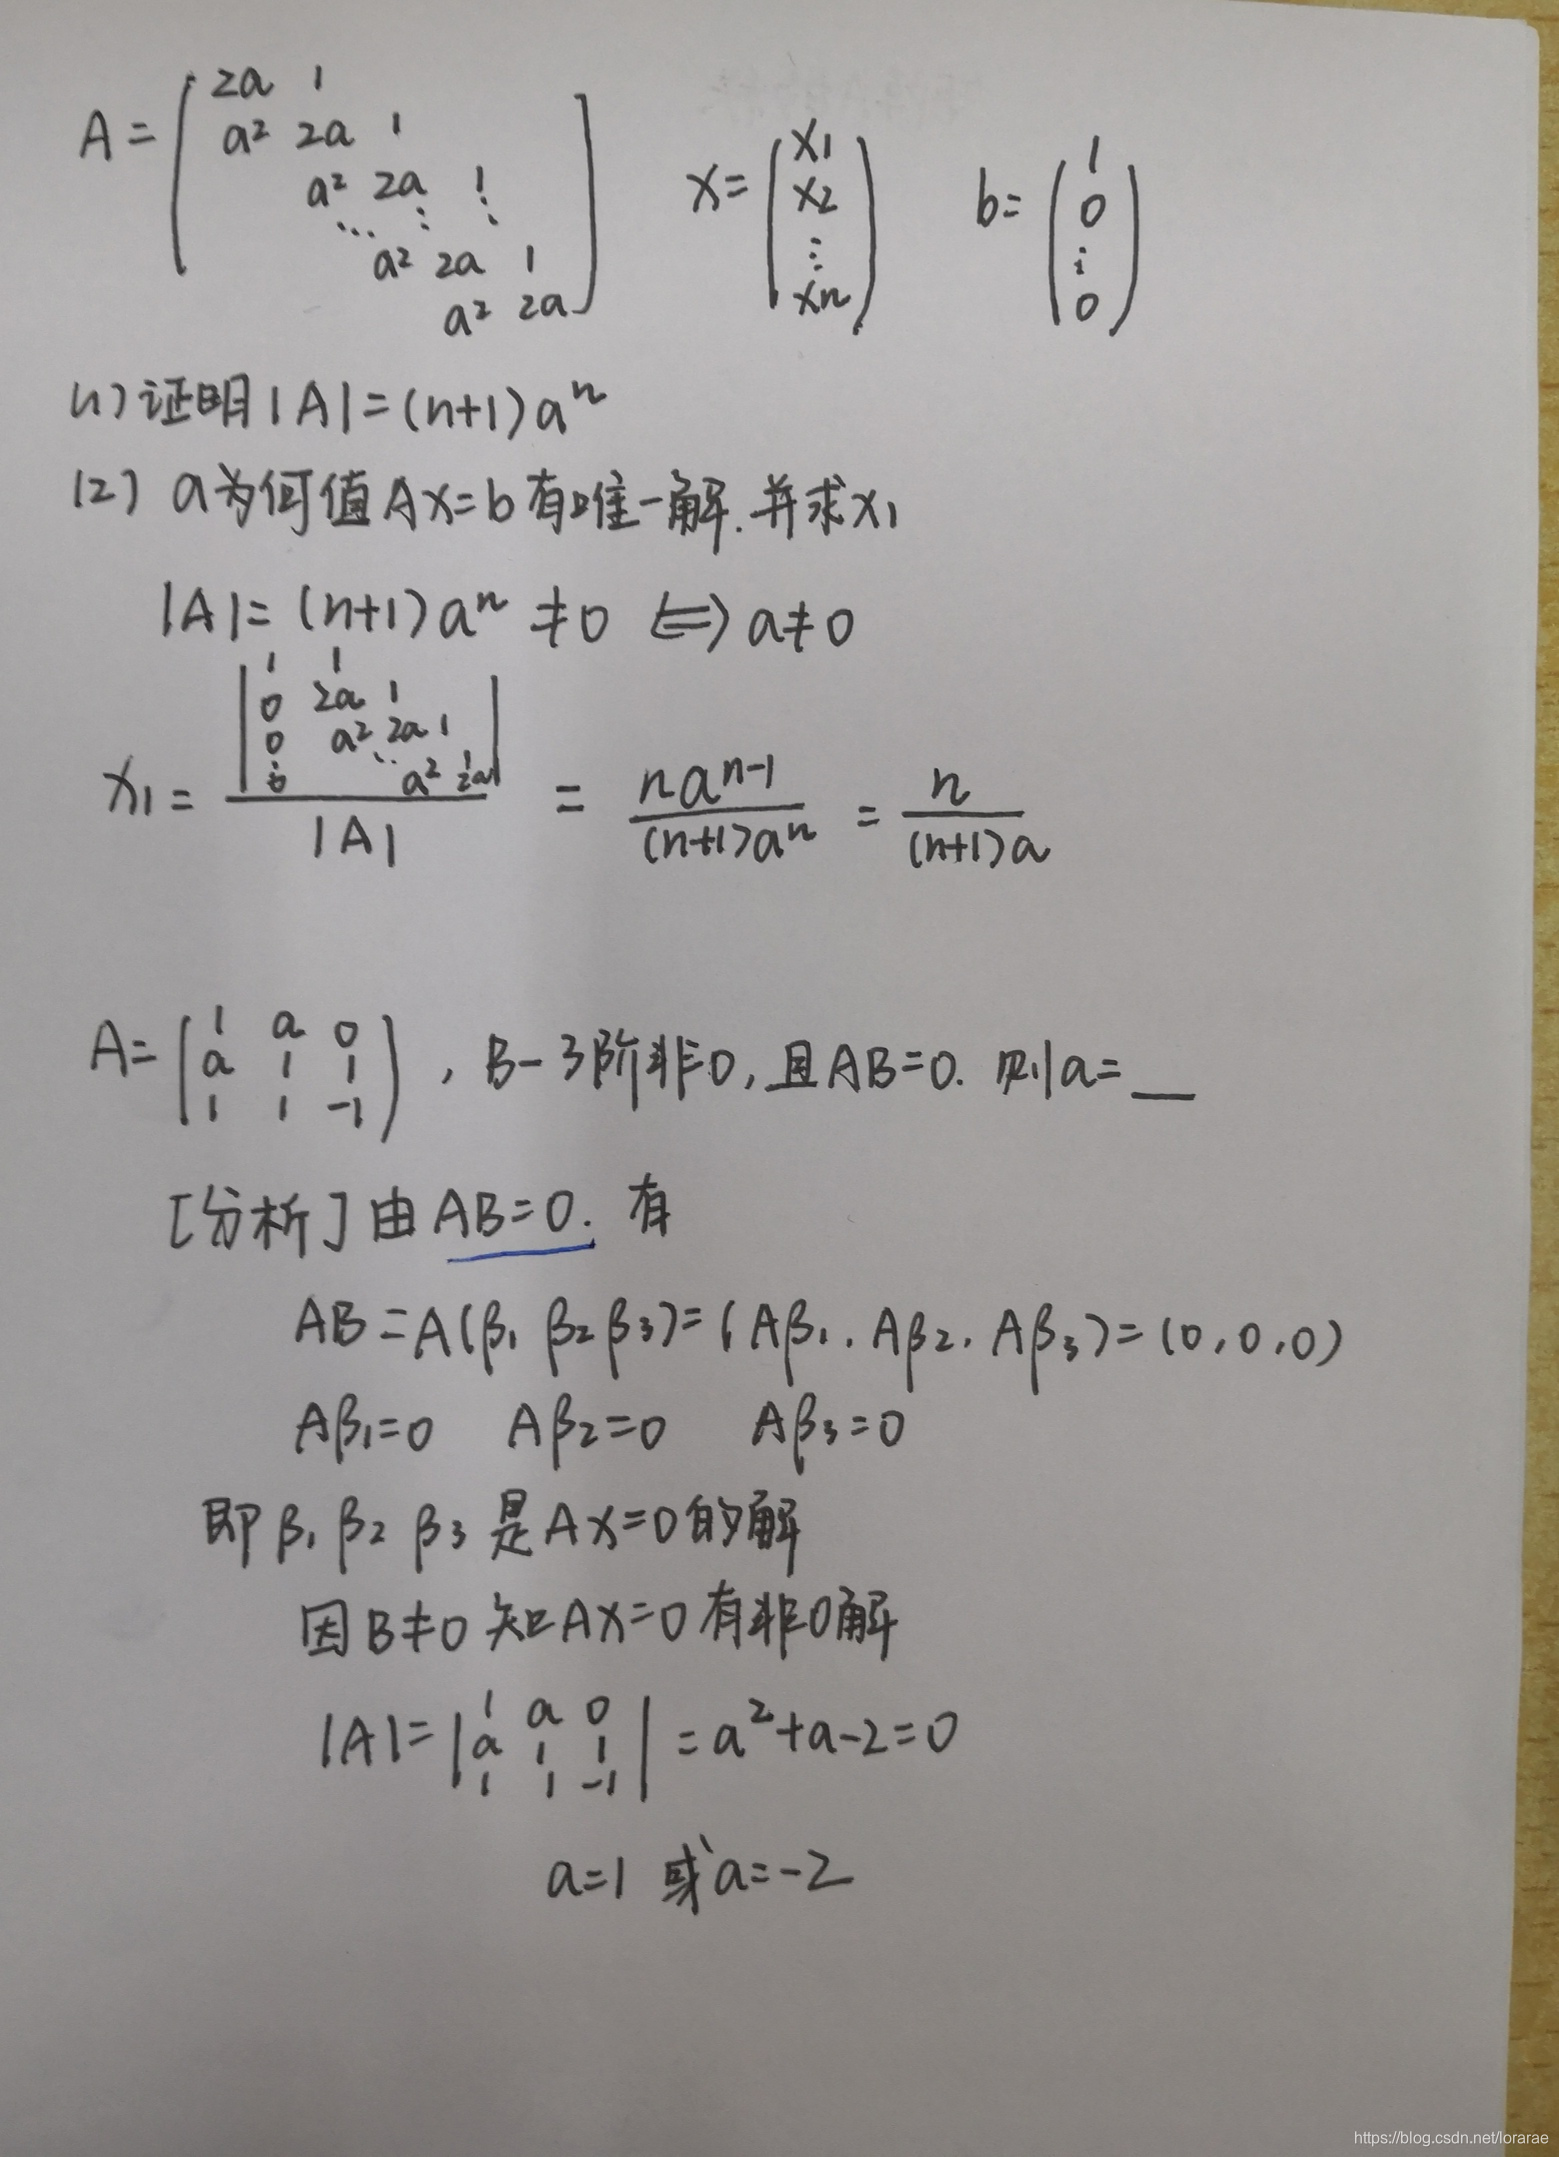 A= [2a 1
a² 2a 1
a² 2a 1
… ⋮ ⋱
a² 2a 1
a² 2a]
x= (x1
x2
⋮
xn)
b= (1
0
⋮
0)
(1) 证明|A|=(n+1)aⁿ
(2) a为何值Ax=b有唯一解.并求x1
|A|=(n+1)aⁿ≠0 ⇔ a≠0
x1= |1 1
0 2a 1
0 a² 2a 1
⋮ ⋱ ⋮
0 a² 2a| / |A| = naⁿ⁻¹ / (n+1)aⁿ = n / (n+1)a
A= (1 a 0
a 1 1
1 1 -1) , B-3阶非0,且AB=0. 则a=__
[分析]由AB=0. 有
AB=A(β1 β2 β3)=(Aβ1, Aβ2, Aβ3)=(0,0,0)
Aβ1=0 Aβ2=0 Aβ3=0
即β1 β2 β3 是Ax=0的解
因B≠0知Ax=0有非0解
|A|= |1 a 0
a 1 1
1 1 -1| =a²+a-2=0
a=1 或a=-2
https://blog.csdn.net/lorarae